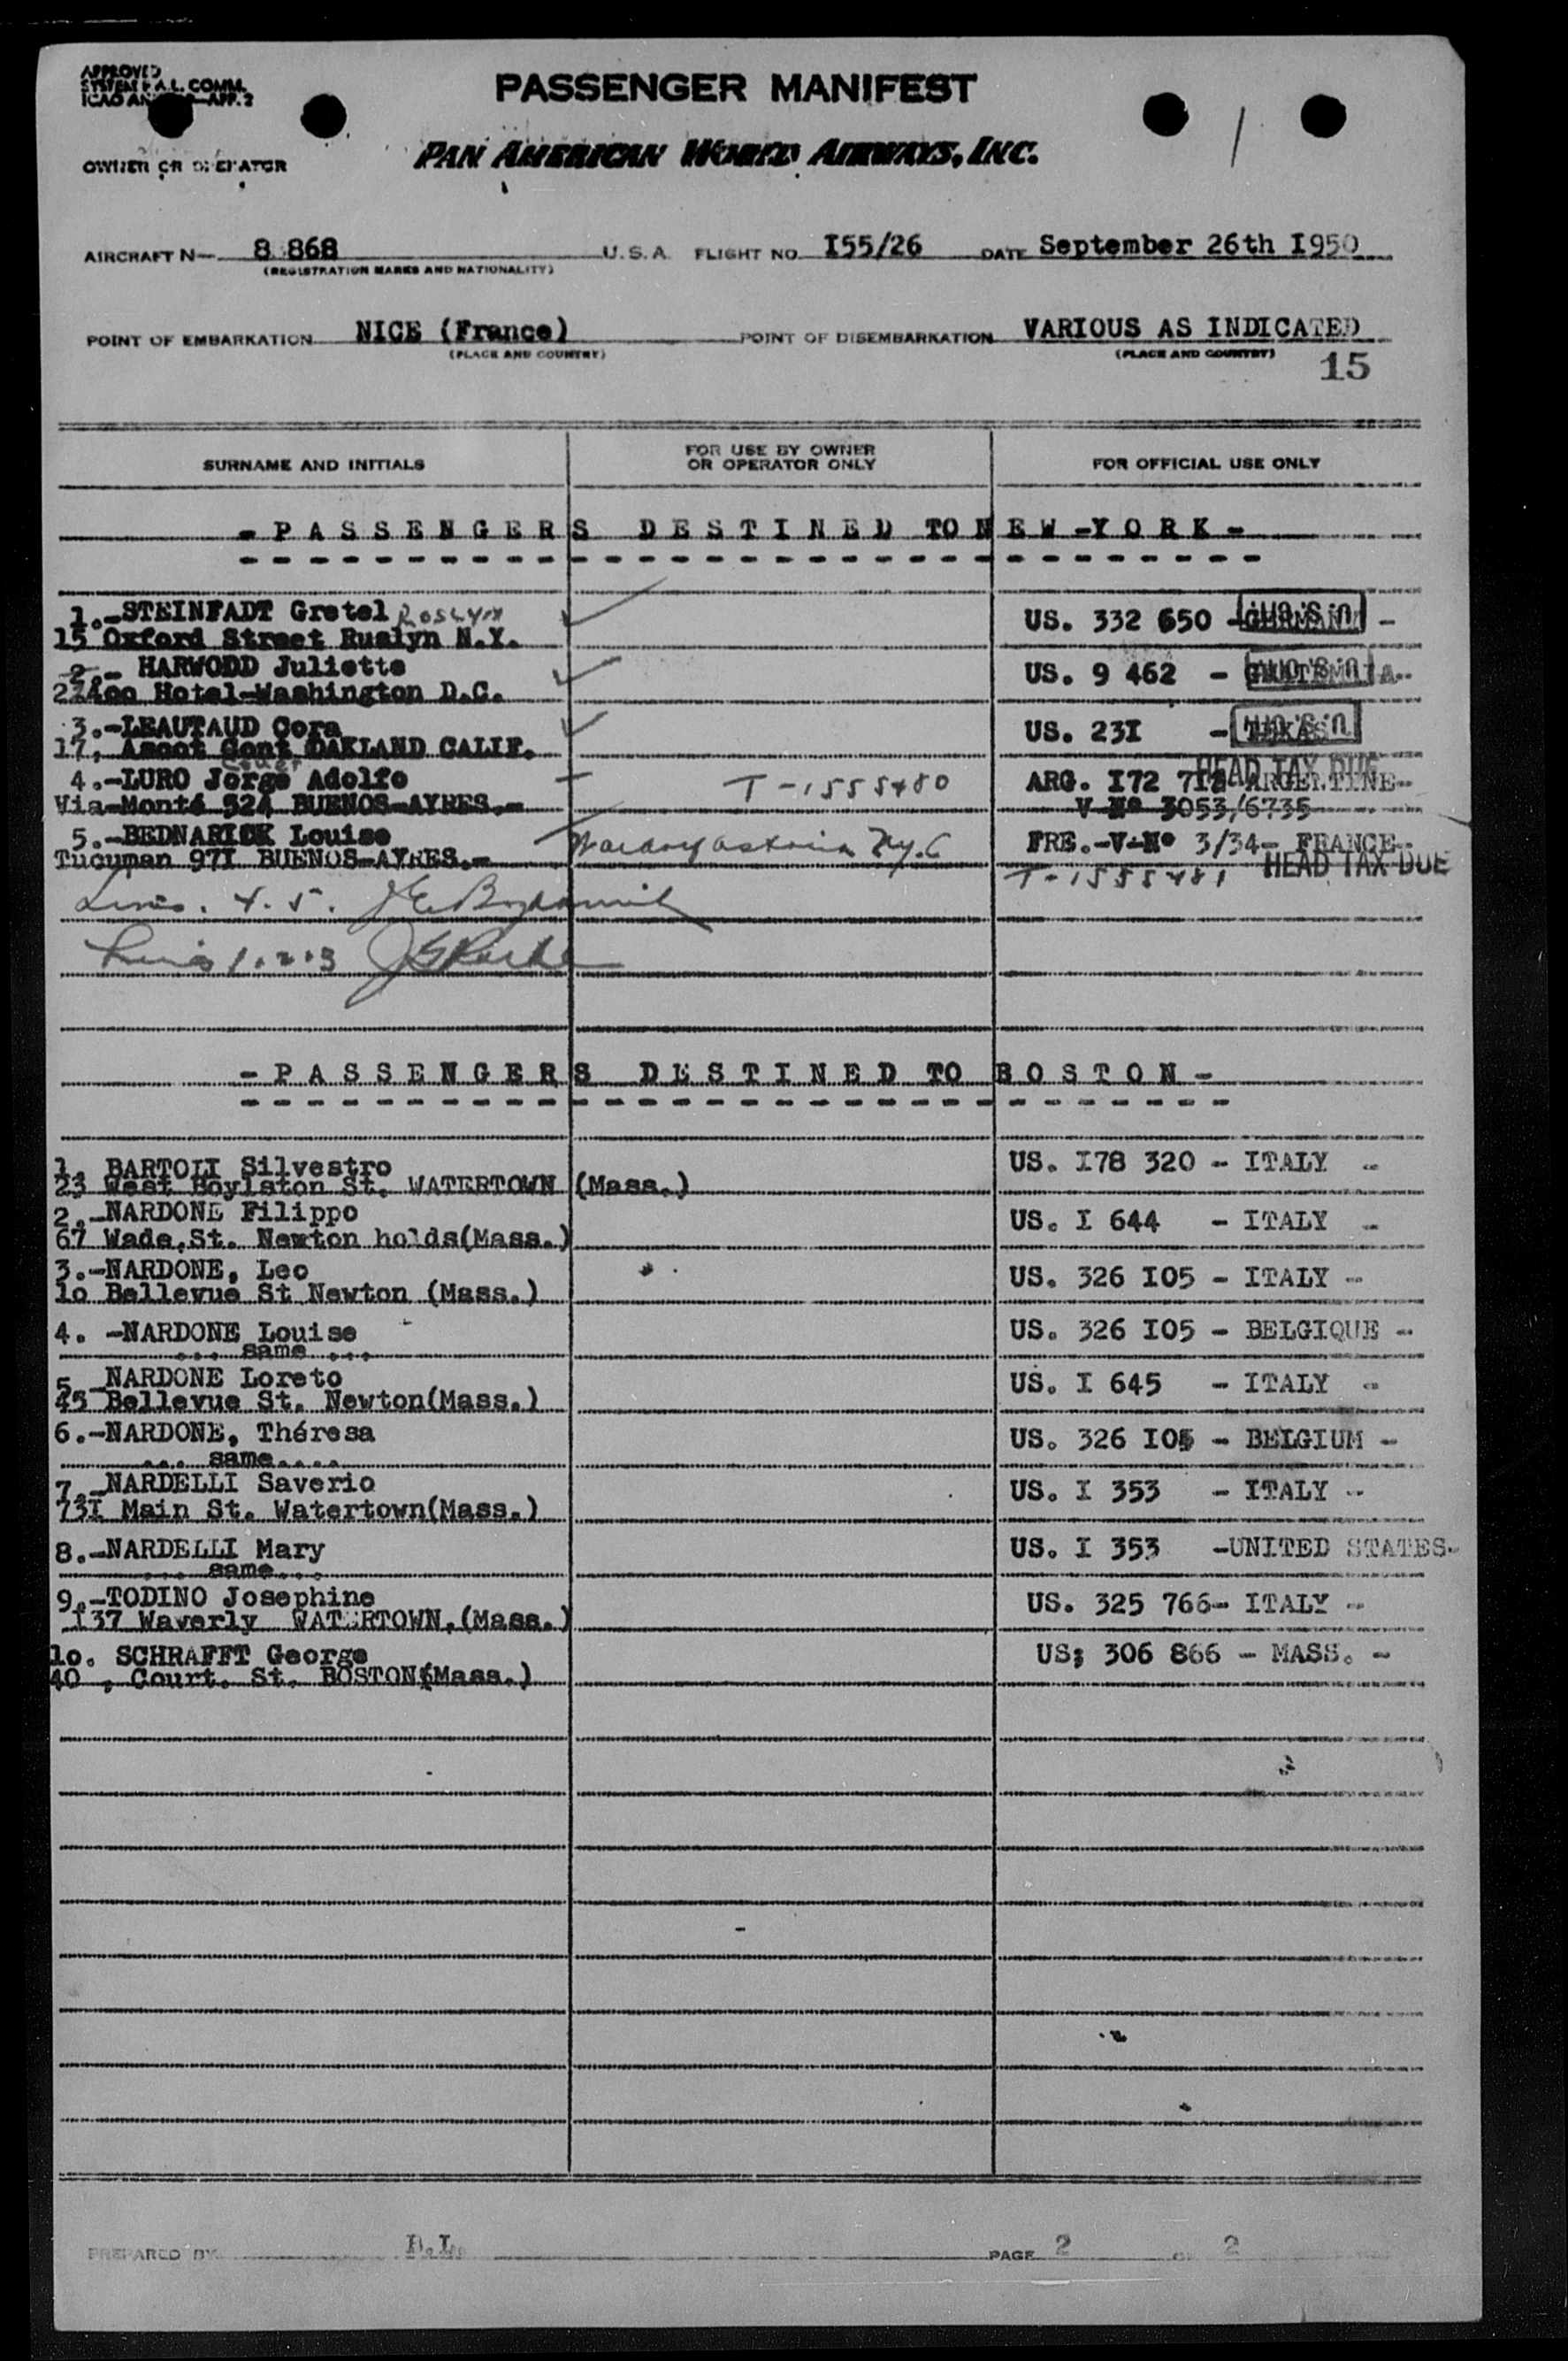 APPROVED
SYSTEM P.A.L. COMM.
ICAO APP. 2
PASSENGER MANIFEST
PAN AMERICAN WORLD AIRWAYS, INC.
OWNER OR OPERATOR
AIRCRAFT N— 8 868 U.S.A. FLIGHT NO. I55/26 DATE September 26th I950
(REGISTRATION MARKS AND NATIONALITY)
POINT OF EMBARKATION NICE (France) POINT OF DISEMBARKATION VARIOUS AS INDICATED
(PLACE AND COUNTRY) (PLACE AND COUNTRY)
15
SURNAME AND INITIALS FOR USE BY OWNER OR OPERATOR ONLY FOR OFFICIAL USE ONLY
- P A S S E N G E R S D E S T I N E D TO N E W - Y O R K -
1.-STEINFADT Gretel Roslyn US. 332 650 -
15 Oxford Street Rualyn N.Y.
2.- HARWODD Juliette US. 9 462 -
Hotel-Washington D.C.
3.-LEAUTAUD Cora US. 23I -
17, Ascot Gont OAKLAND CALIF.
4.-LURO Jorge Adolfo T-1555480 ARG. I72 712 ARGENTINE-
HEAD TAX DUE
Via-Monté 524 BUENOS-AYRES.- V-N° 3053/6735
5.-BEDNARICK Louise Waldorf Astoria N.y.C FRE.-V-N° 3/34- FRANCE-
Tucuman 97I BUENOS-AYRES.- HEAD TAX DUE
T-1555481
Lines. 4.5.
Lines 1.2.3
- P A S S E N G E R S D E S T I N E D TO B O S T O N -
1. BARTOLI Silvestro US. I78 320 - ITALY -
23 West Boylston St. WATERTOWN (Mass.)
2.-NARDONE Filippo US. I 644 - ITALY -
67 Wade.St. Newton holds(Mass.)
3.-NARDONE, Leo US. 326 I05 - ITALY -
1o Bellevue St Newton (Mass.)
4. -NARDONE Louise US. 326 I05 - BELGIQUE -
... same ...
5 -NARDONE Loreto US. I 645 - ITALY -
45 Bellevue St. Newton(Mass.)
6.-NARDONE, Théresa US. 326 I05 - BELGIUM -
... same....
7.-NARDELLI Saverio US. I 353 - ITALY -
73I Main St. Watertown(Mass.)
8.-NARDELLI Mary US. I 353 -UNITED STATES-
... same...
9.-TODINO Josephine US. 325 766- ITALY -
I37 Waverly WATERTOWN,(Mass.)
1o. SCHRAFFT George US; 306 866 - MASS. -
40 , Court. St. BOSTON(Mass.)
PREPARED BY PAGE 2 OF 2